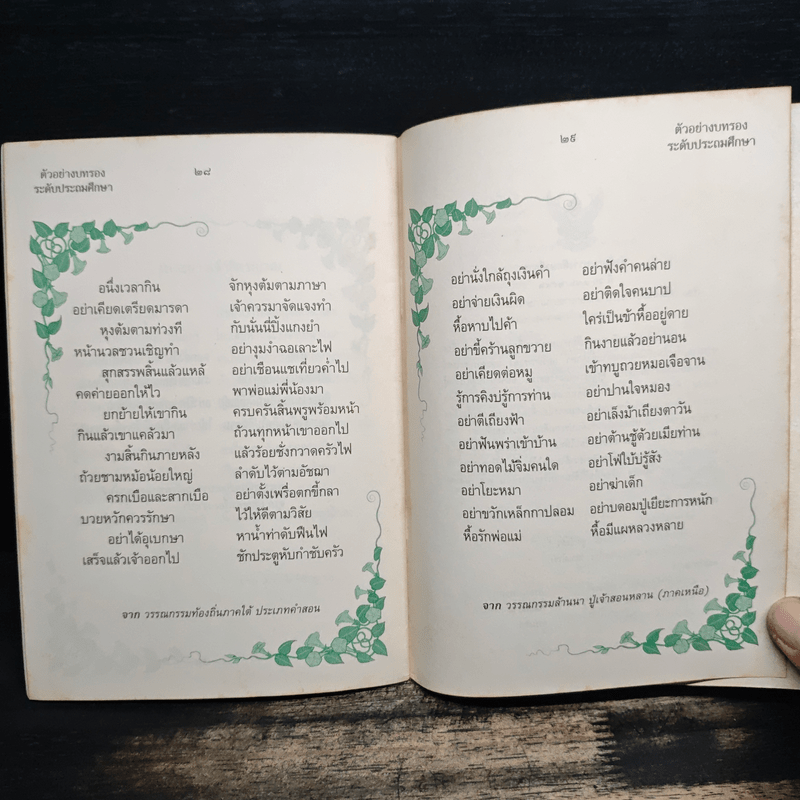 ตัวอย่างบทรอง
ระดับประถมศึกษา
๒๘
อนึ่งเวลากิน จักหุงต้มตามภาษา
อย่าเคียดเตรียดมารดา เจ้าควรมาจัดแจงทำ
หุงต้มตามท่วงที กับนั่นนี่ปิ้งแกงยำ
หน้านวลชวนเชิญทำ อย่างุมงำฉอเลาะไฟ
สุกสรรพสิ้นแล้วแหล้ อย่าเชือนแชเที่ยวค่ำไป
คดค่ายออกให้ไว พาพ่อแม่พี่น้องมา
ยกย้ายให้เขากิน ครบครันสิ้นพรูพร้อมหน้า
กินแล้วเขาแคล้วมา ถ้วนทุกหน้าเขาออกไป
งามสิ้นกินภายหลัง แล้วร้อยชั่งกวาดครัวไฟ
ถ้วยชามหม้อน้อยใหญ่ ลำดับไว้ตามอัชฌา
ครกเบือและสากเบือ อย่าตั้งเพรื่อตกขี้กลา
บวยหวักควรรักษา ไว้ให้ดีตามวิสัย
อย่าได้อุเบกษา หาน้ำท่าดับฟืนไฟ
เสร็จแล้วเจ้าออกไป ชักประตูหับกำชับครัว
จาก วรรณกรรมท้องถิ่นภาคใต้ ประเภทคำสอน
๒๙
ตัวอย่างบทรอง
ระดับประถมศึกษา
อย่านั่งใกล้ถุงเงินคำ อย่าฟังคำคนล่าย
อย่าจ่ายเงินผิด อย่าติดใจคนบาป
หื้อหาบไปค้า ใคร่เป็นข้าหื้ออยู่ดาย
อย่าขี้คร้านลูกขวาย กินงายแล้วอย่านอน
อย่าเคียดต่อหมู เข้าทบูถวยหมอเจือจาน
รู้การคิงบ่รู้การท่าน อย่าปานใจหมอง
อย่าตีเถียงฟ้า อย่าเล็งม้าเถียงตาวัน
อย่าฟันพร่าเข้าบ้าน อย่าด้านชู้ด้วยเมียท่าน
อย่าทอดไม้จิ่มคนใด อย่าโฟ่ใบ้บ่รู้สัง
อย่าโยะหมา อย่าฆ่าเด็ก
อย่าขวักเหล็กกาปลอม อย่าบดอมปู่เยียะการหนัก
หื้อรักพ่อแม่ หื้อมีแผหลวงหลาย
จาก วรรณกรรมล้านนา ปู่เจ้าสอนหลาน (ภาคเหนือ)